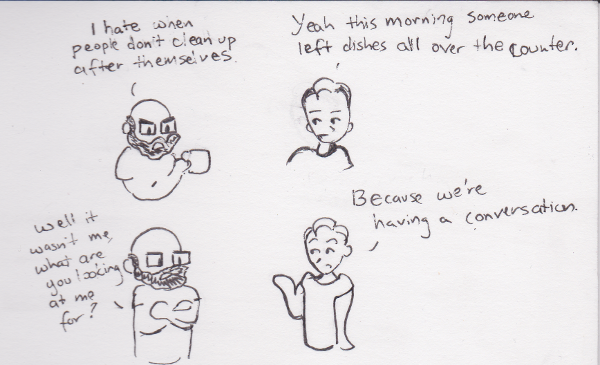 I hate when
people don't clean up
after themselves.
Yeah this morning someone
left dishes all over the counter.
Well it
wasn't me,
what are
you looking
at me
for?
Because we're
having a conversation.